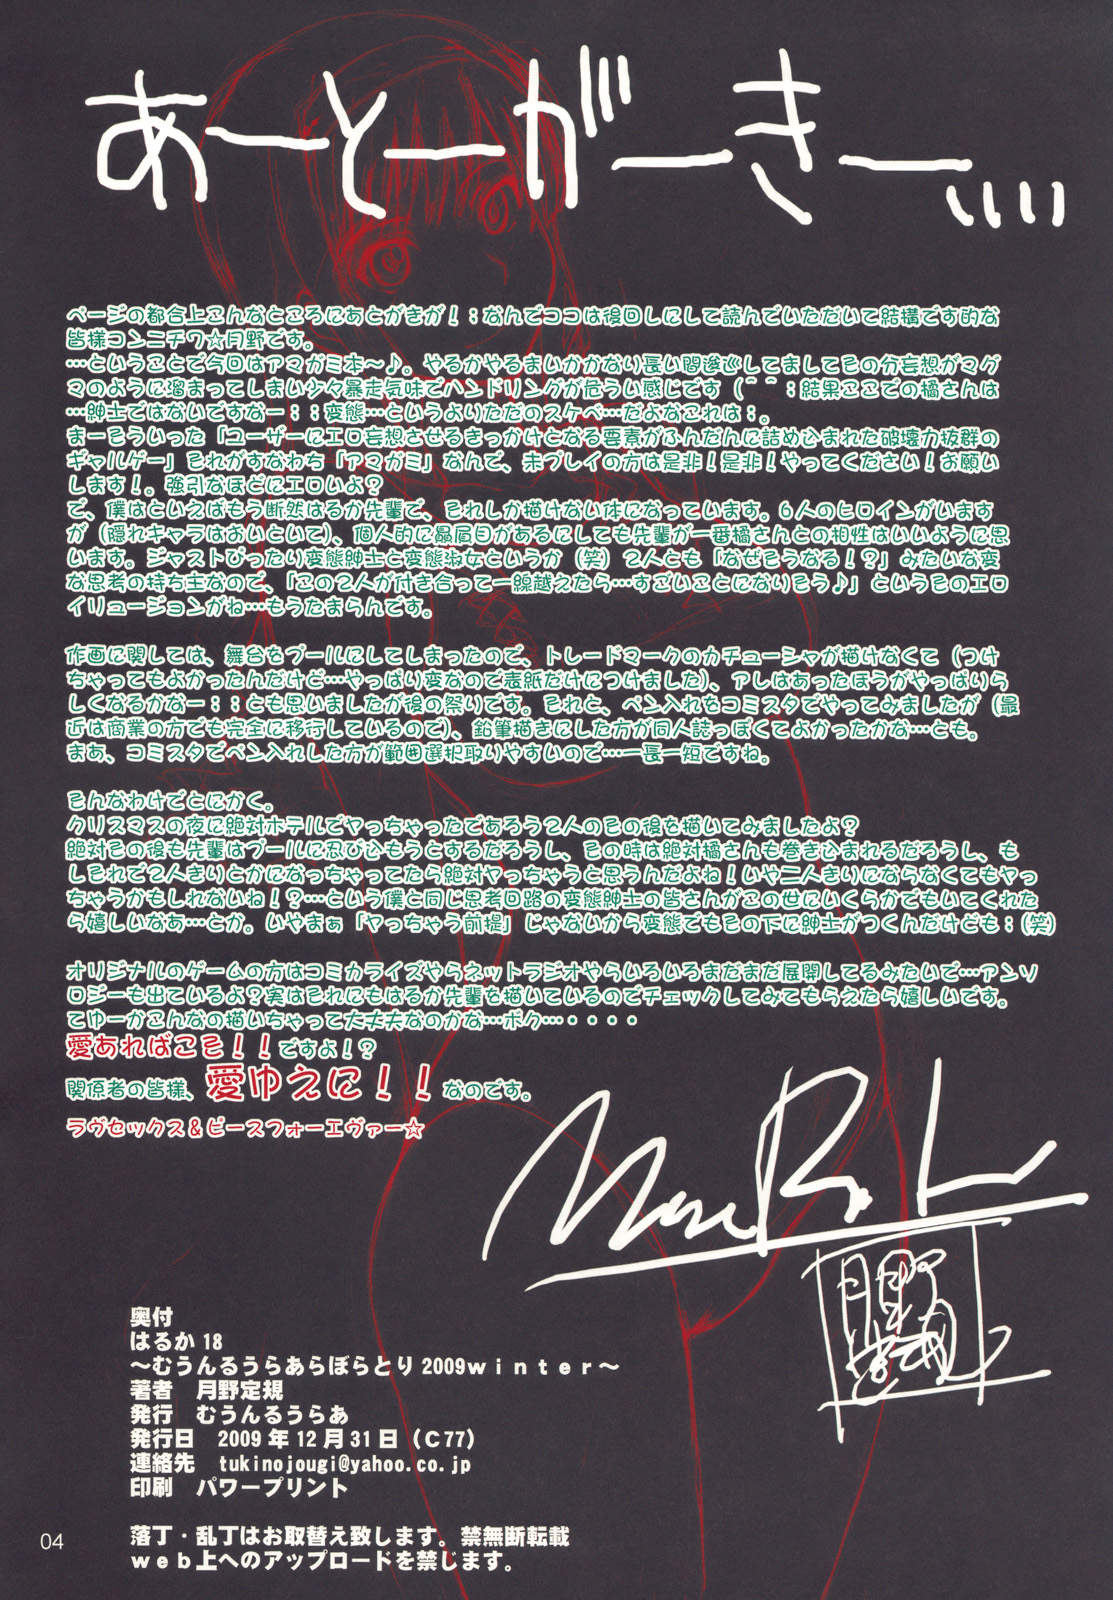 あーとーがーきー、、、、
ページの都合上こんなところにあとがきが！；なんでココは後回しにして読んでいただいて結構です的な
皆様コンニチワ☆月野です。
…ということで今回はアマガミ本～♪。やるかやるまいかかなり長い間逡巡してましてその分妄想がマグ
マのように溜まってしまい少々暴走気味でハンドリングが危うい感じです（＾＾；結果ここでの橘さんは
…紳士ではないですなー；；変態…というよりただのスケベ…だよなこれは；。
まーそういった「ユーザーにエロ妄想させるきっかけとなる要素がふんだんに詰め込まれた破壊力抜群の
ギャルゲー」それがすなわち「アマガミ」なんで、未プレイの方は是非！是非！やってください！お願い
します！。強引なほどにエロいよ？
で、僕はといえばもう断然はるか先輩で、それしか描けない体になっています。6人のヒロインがいます
が（隠れキャラはおいといて）、個人的に贔屓目があるにしても先輩が一番橘さんとの相性はいいように思
います。ジャストぴったり変態紳士と変態淑女というか（笑）2人とも「なぜそうなる！？」みたいな変
な思考の持ち主なので、「この2人が付き合って一線越えたら…すごいことになりそう♪」というそのエロ
イリュージョンがね…もうたまらんです。

作画に関しては、舞台をプールにしてしまったので、トレードマークのカチューシャが描けなくて（つけ
ちゃってもよかったんだけど…やっぱり変なので表紙だけにつけました）、アレはあったほうがやっぱりら
しくなるかなー；；とも思いましたが後の祭りです。それと、ペン入れをコミスタでやってみましたが（最
近は商業の方でも完全に移行しているので）、鉛筆描きにした方が同人誌っぽくてよかったかな…とも。
まあ、コミスタでペン入れした方が範囲選択取りやすいので…一長一短ですね。

そんなわけでとにかく。
クリスマスの夜に絶対ホテルでヤっちゃったであろう2人のその後を描いてみましたよ？
絶対その後も先輩はプールに忍び込もうとするだろうし、その時は絶対橘さんも巻き込まれるだろうし、も
しそれで2人きりとかになっちゃってたら絶対ヤっちゃうと思うんだよね！いや二人きりにならなくてもヤっ
ちゃうかもしれないね！？…という僕と同じ思考回路の変態紳士の皆さんがこの世にいくらかでもいてくれた
ら嬉しいなあ…とか。いやまぁ「ヤっちゃう前提」じゃないから変態でもその下に紳士がつくんだけども；（笑）

オリジナルのゲームの方はコミカライズやらネットラジオやらいろいろまだまだ展開してるみたいで…アンソ
ロジーも出ているよ？実はそれにもはるか先輩を描いているのでチェックしてみてもらえたら嬉しいです。
てゆーかこんなの描いちゃって大丈夫なのかな…ボク…・・・・
愛あればこそ！！ですよ！？
関係者の皆様、愛ゆえに！！なのです。
ラヴセックス＆ピースフォーエヴァー☆
月野定規
奥付
はるか18
～むうんるうらあらぼらとり2009winter～
著者　月野定規
発行　むうんるうらあ
発行日　2009年12月31日（C77）
連絡先　tukinojougi@yahoo.co.jp
印刷　パワープリント
落丁・乱丁はお取替え致します。禁無断転載
web上へのアップロードを禁じます。
04